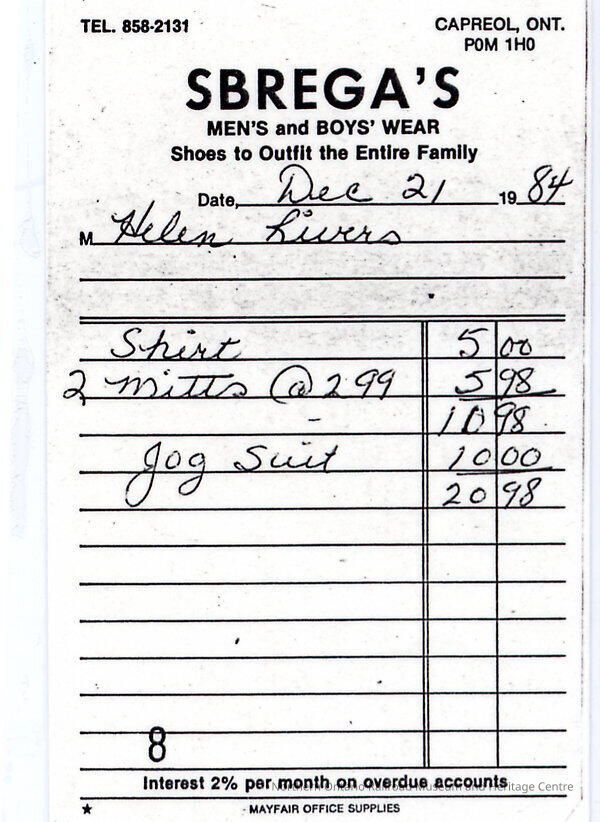 TEL. 858-2131
CAPREOL, ONT.
P0M 1H0
SBREGA'S
MEN'S and BOYS' WEAR
Shoes to Outfit the Entire Family
Date, Dec 21 19 84
M Helen Rivers
Shirt 5 00
2 Mitts @ 2 99 5 98
10 98
Jog Suit 10 00
20 98
8
Interest 2% per month on overdue accounts
Northern Ontario Railroad Museum and Heritage Centre
★ - MAYFAIR OFFICE SUPPLIES